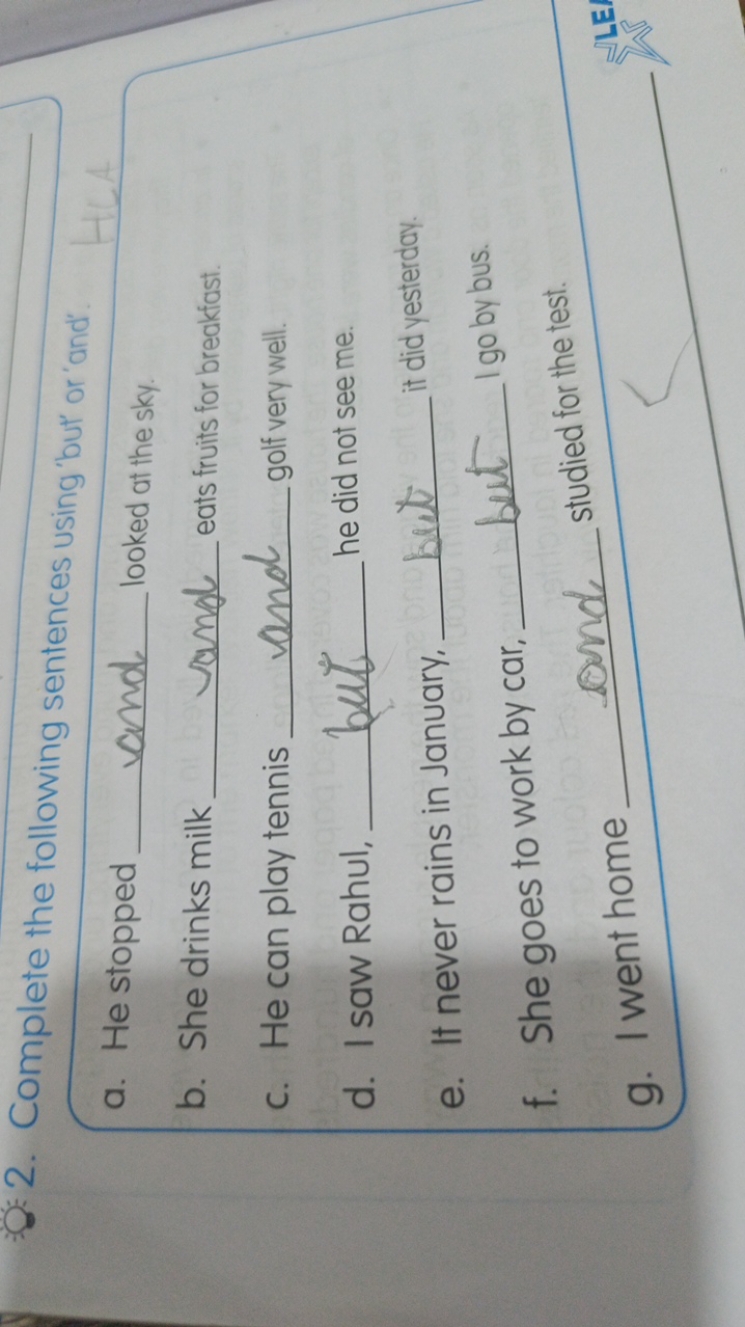 2. Complete the following sentences using 'but' or 'and'.
HCA
a. He stopped and looked at the sky.
b. She drinks milk and eats fruits for breakfast.
c. He can play tennis and golf very well.
d. I saw Rahul, but he did not see me.
e. It never rains in January, but it did yesterday.
f. She goes to work by car, but I go by bus.
g. I went home and studied for the test.